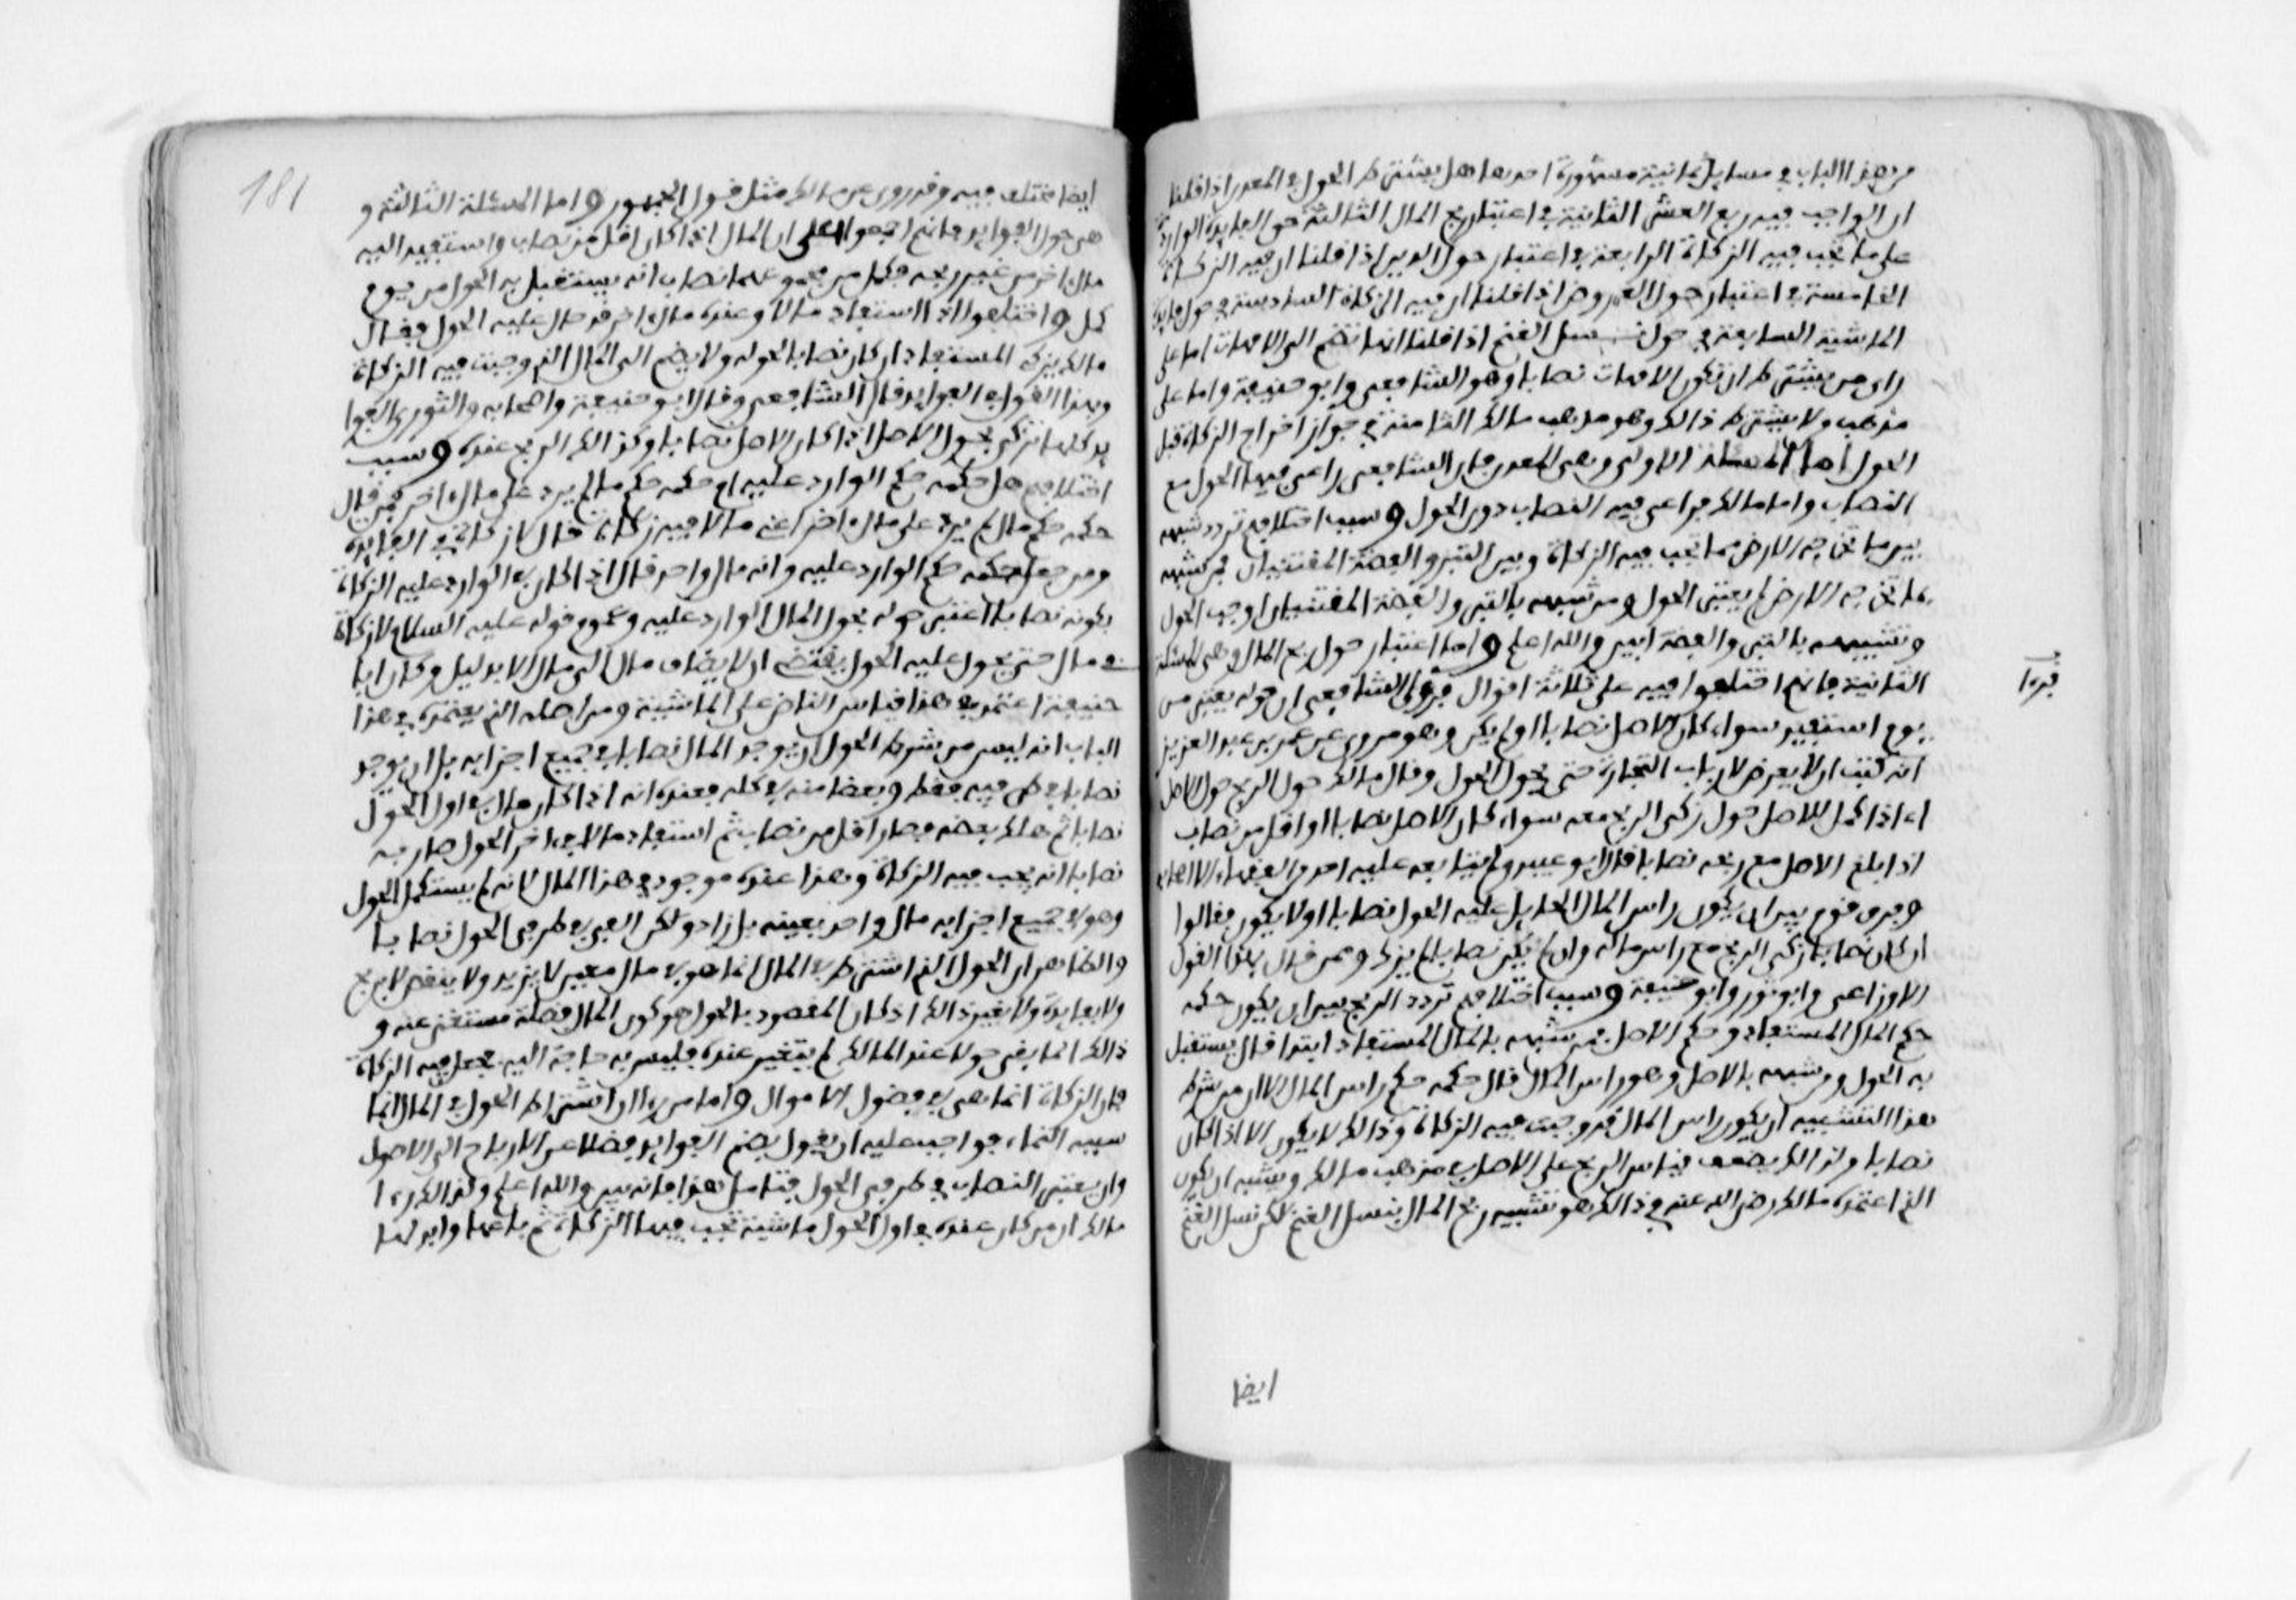 من هذا الباب في مسايل ثمانية مشهورة احدها هل يشترط الحول في المعدن اذا قلنا
ان الواجب فيه ربع العشر الثانية في اعتبار ربح المال الثالثة حول الفايدة الواردة
على ما تجب فيه الزكاة الرابعة في اعتبار حول الدين اذا قلنا ان فيه الزكاة
الخامسة في اعتبار حول العروض اذا قلنا ان فيه الزكاة السادسة في حول فايدة
الماشية السابعة في حول نسل الغنم اذا قلنا انها تضم الى الامهات اما على
راي من يشترط ان تكون الامهات نصابا وهو الشافعي وابو حنيفة واما على
مذهب ولا يشترط ذالك وهو مذهب مالك الثامنة في جواز اخراج الزكاة قبل
الحول اما المسئلة الاولى وهي المعدن فان الشافعي راعى فيها الحول مع
النصاب واما مالك فراعى فيه النصاب دون الحول وسبب اختلافهم تردد شبهه
بين ما تخرجه الارض مما تجب فيه الزكاة وبين التبر والفضة المقتنيان فمن شبهه
بما تخرجه الارض لم يعتبر الحول ومن شبهه بالتبر والفضة المقتنيان اوجب الحول
وتشبيهه بالتبر والفضة ابين والله اعلم واما اعتبار حول ربح المال وهي المسئلة
الثانية فانهم اختلفوا فيه على ثلاثة اقوال فروى الشافعي ان حوله يعتبر من
يوم استفيد سواء كان الاصل نصابا اولم يكن وهو مروي عن عمر بن عبد العزيز
انه كتب ان لا يعرض لارباب التجارة حتى يحول الحول وقال مالك حول الربح حول الاصل
اي اذا كمل للاصل حول زكى الربح معه سواء كان الاصل نصابا او اقل من نصاب
اذا بلغ الاصل مع ربحه نصابا قال ابو عبيد ولم يتابعه عليه احد من الفقهاء الا اصحابه
وفرق قوم بين ان يكون راس المال الحايل عليه الحول نصابا او لا يكون فقالوا
ان كان نصابا زكى الربح مع راس ماله وان لم يكن نصابا لم يزك وممن قال بهذا القول
الاوزاعي وابو ثور وابو حنيفة وسبب اختلافهم تردد الربح بين ان يكون حكمه
حكم المال المستفاد وحكم الاصل فمن شبهه بالمال المستفاد ابتدا قال يستقبل
به الحول ومن شبهه بالاصل وهو راس المال قال حكمه حكم راس المال الا ان من شرط
هذا التشبيه ان يكون راس المال قد وجبت فيه الزكاة وذالك لا يكون الا اذا كان
نصابا ولذالك يضعف قياس الربح على الاصل في مذهب مالك ويشبه ان يكون
الذي اعتمده مالك رضي الله عنه في ذالك هو تشبيه ربح المال بنسل الغنم لكن نسل الغنم
ايضا
ايضا مختلف فيه وقد روي عن مالك مثل قول الجمهور واما المسئلة الثالثة و
هي حول الفوايد فانهم اجمعوا على ان المال اذا كان اقل من نصاب واستفيد اليه
مال اخر من غير ربحه فكمل من مجموعهما نصاب انه يستقبل به الحول من يوم
كمل واختلفوا اذا استفاد مالا وعنده مال اخر قد حال عليه الحول فقال
مالك يزكى المستفاد ان كان نصابا لحوله ولا يضم الى المال الذي وجبت فيه الزكاة
وبهذا القول في الفوايد قال الشافعي وقال ابو حنيفة واصحابه والثوري الفوا
يد كلها تزكى بحول الاصل اذا كان الاصل نصابا وكذالك الربح عنده وسبب
اختلافهم هل حكمه حكم الوارد عليه ام حكمه حكم مال لم يرد على مال اخر فمن قال
حكمه حكم مال لم يرد على مال اخر اعني مالا فيه زكاة قال لا زكاة في الفايدة
ومن جعل حكمه حكم الوارد عليه وانه مال واحد قال اذا كان في الوارد عليه الزكاة
بكونه نصابا اعتبر حوله بحول المال الوارد عليه وعموم قوله عليه السلام لا زكاة
في مال حتى يحول عليه الحول يقتضي ان لا يضاف مال الى مال الا بدليل وكان ابا
حنيفة اعتمد في هذا قياس الناض على الماشية ومن اصله الذي يعتمده في هذا
الباب انه ليس من شرط الحول ان يوجد المال نصابا في جميع اجزايه بل ان يوجد
نصابا في طرفيه فقط وبعضا منه في كله فعنده انه اذا كان مال في اول الحول
نصابا ثم هلك بعضه فصار اقل من نصاب ثم استفاد مالا في اخر الحول صار به
نصابا انه تجب فيه الزكاة وهذا عنده موجود في هذا المال لانه لم يستكمل الحول
وهو في جميع اجزايه مال واحد بعينه بل زاد ولكن الفي في طرفي الحول نصابا
والظاهر ان الحول الذي اشترط في المال انما هو في مال معين لا يزيد ولا ينقص لا بربح
ولا بفايدة ولا بغير ذالك اذ كان المقصود بالحول هو كون المال فضلة مستغنى عنه و
ذالك انما بقي حولا عند المالك لم يتغير عنده فليس به حاجة اليه فجعل فيه الزكاة
فان الزكاة انما هي في فضول الاموال واما من راى ان اشتراط الحول في المال انما
سببه النماء فواجب عليه ان يقول بضم الفوايد فضلا عن الارباح الى الاصول
وان يعتبر النصاب في طرفي الحول فتامل هذا فانه بين والله اعلم ولذالك راى
مالك ان من كان عنده في اول الحول ماشية تجب فيها الزكاة ثم باعها وابدلها
181